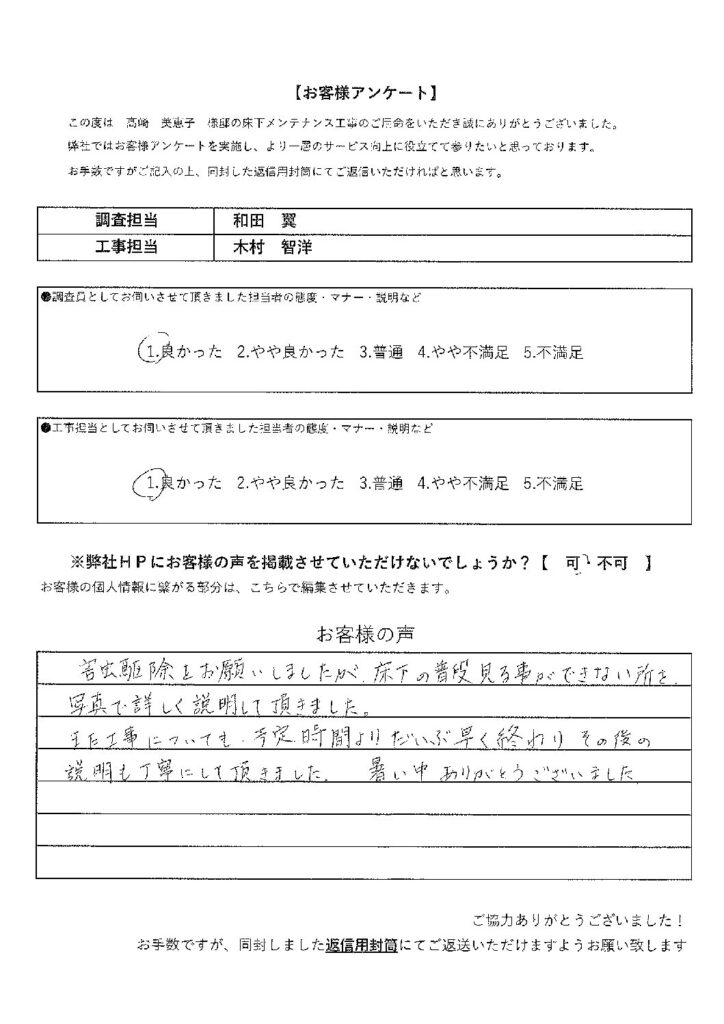 【お客様アンケート】
この度は 高崎 美恵子 様邸の床下メンテナンス工事のご用命をいただき誠にありがとうございました。
弊社ではお客様アンケートを実施し、より一層のサービス向上に役立てて参りたいと思っております。
お手数ですがご記入の上、同封した返信用封筒にてご返信いただければと思います。
調査担当 和田 翼
工事担当 木村 智洋
●調査員としてお伺いさせて頂きました担当者の態度・マナー・説明など
1.良かった 2.やや良かった 3.普通 4.やや不満足 5.不満足
●工事担当としてお伺いさせて頂きました担当者の態度・マナー・説明など
1.良かった 2.やや良かった 3.普通 4.やや不満足 5.不満足
※弊社HPにお客様の声を掲載させていただけないでしょうか?【 可・不可 】
お客様の個人情報に繋がる部分は、こちらで編集させていただきます。
お客様の声
害虫駆除をお願いしましたが、床下の普段見る事ができない所を、
写真で詳しく説明して頂きました。
また工事についても、予定時間よりだいぶ早く終わり その後の
説明も丁寧にして頂きました。 暑い中ありがとうございました
ご協力ありがとうございました!
お手数ですが、同封しました返信用封筒にてご返送いただけますようお願い致します